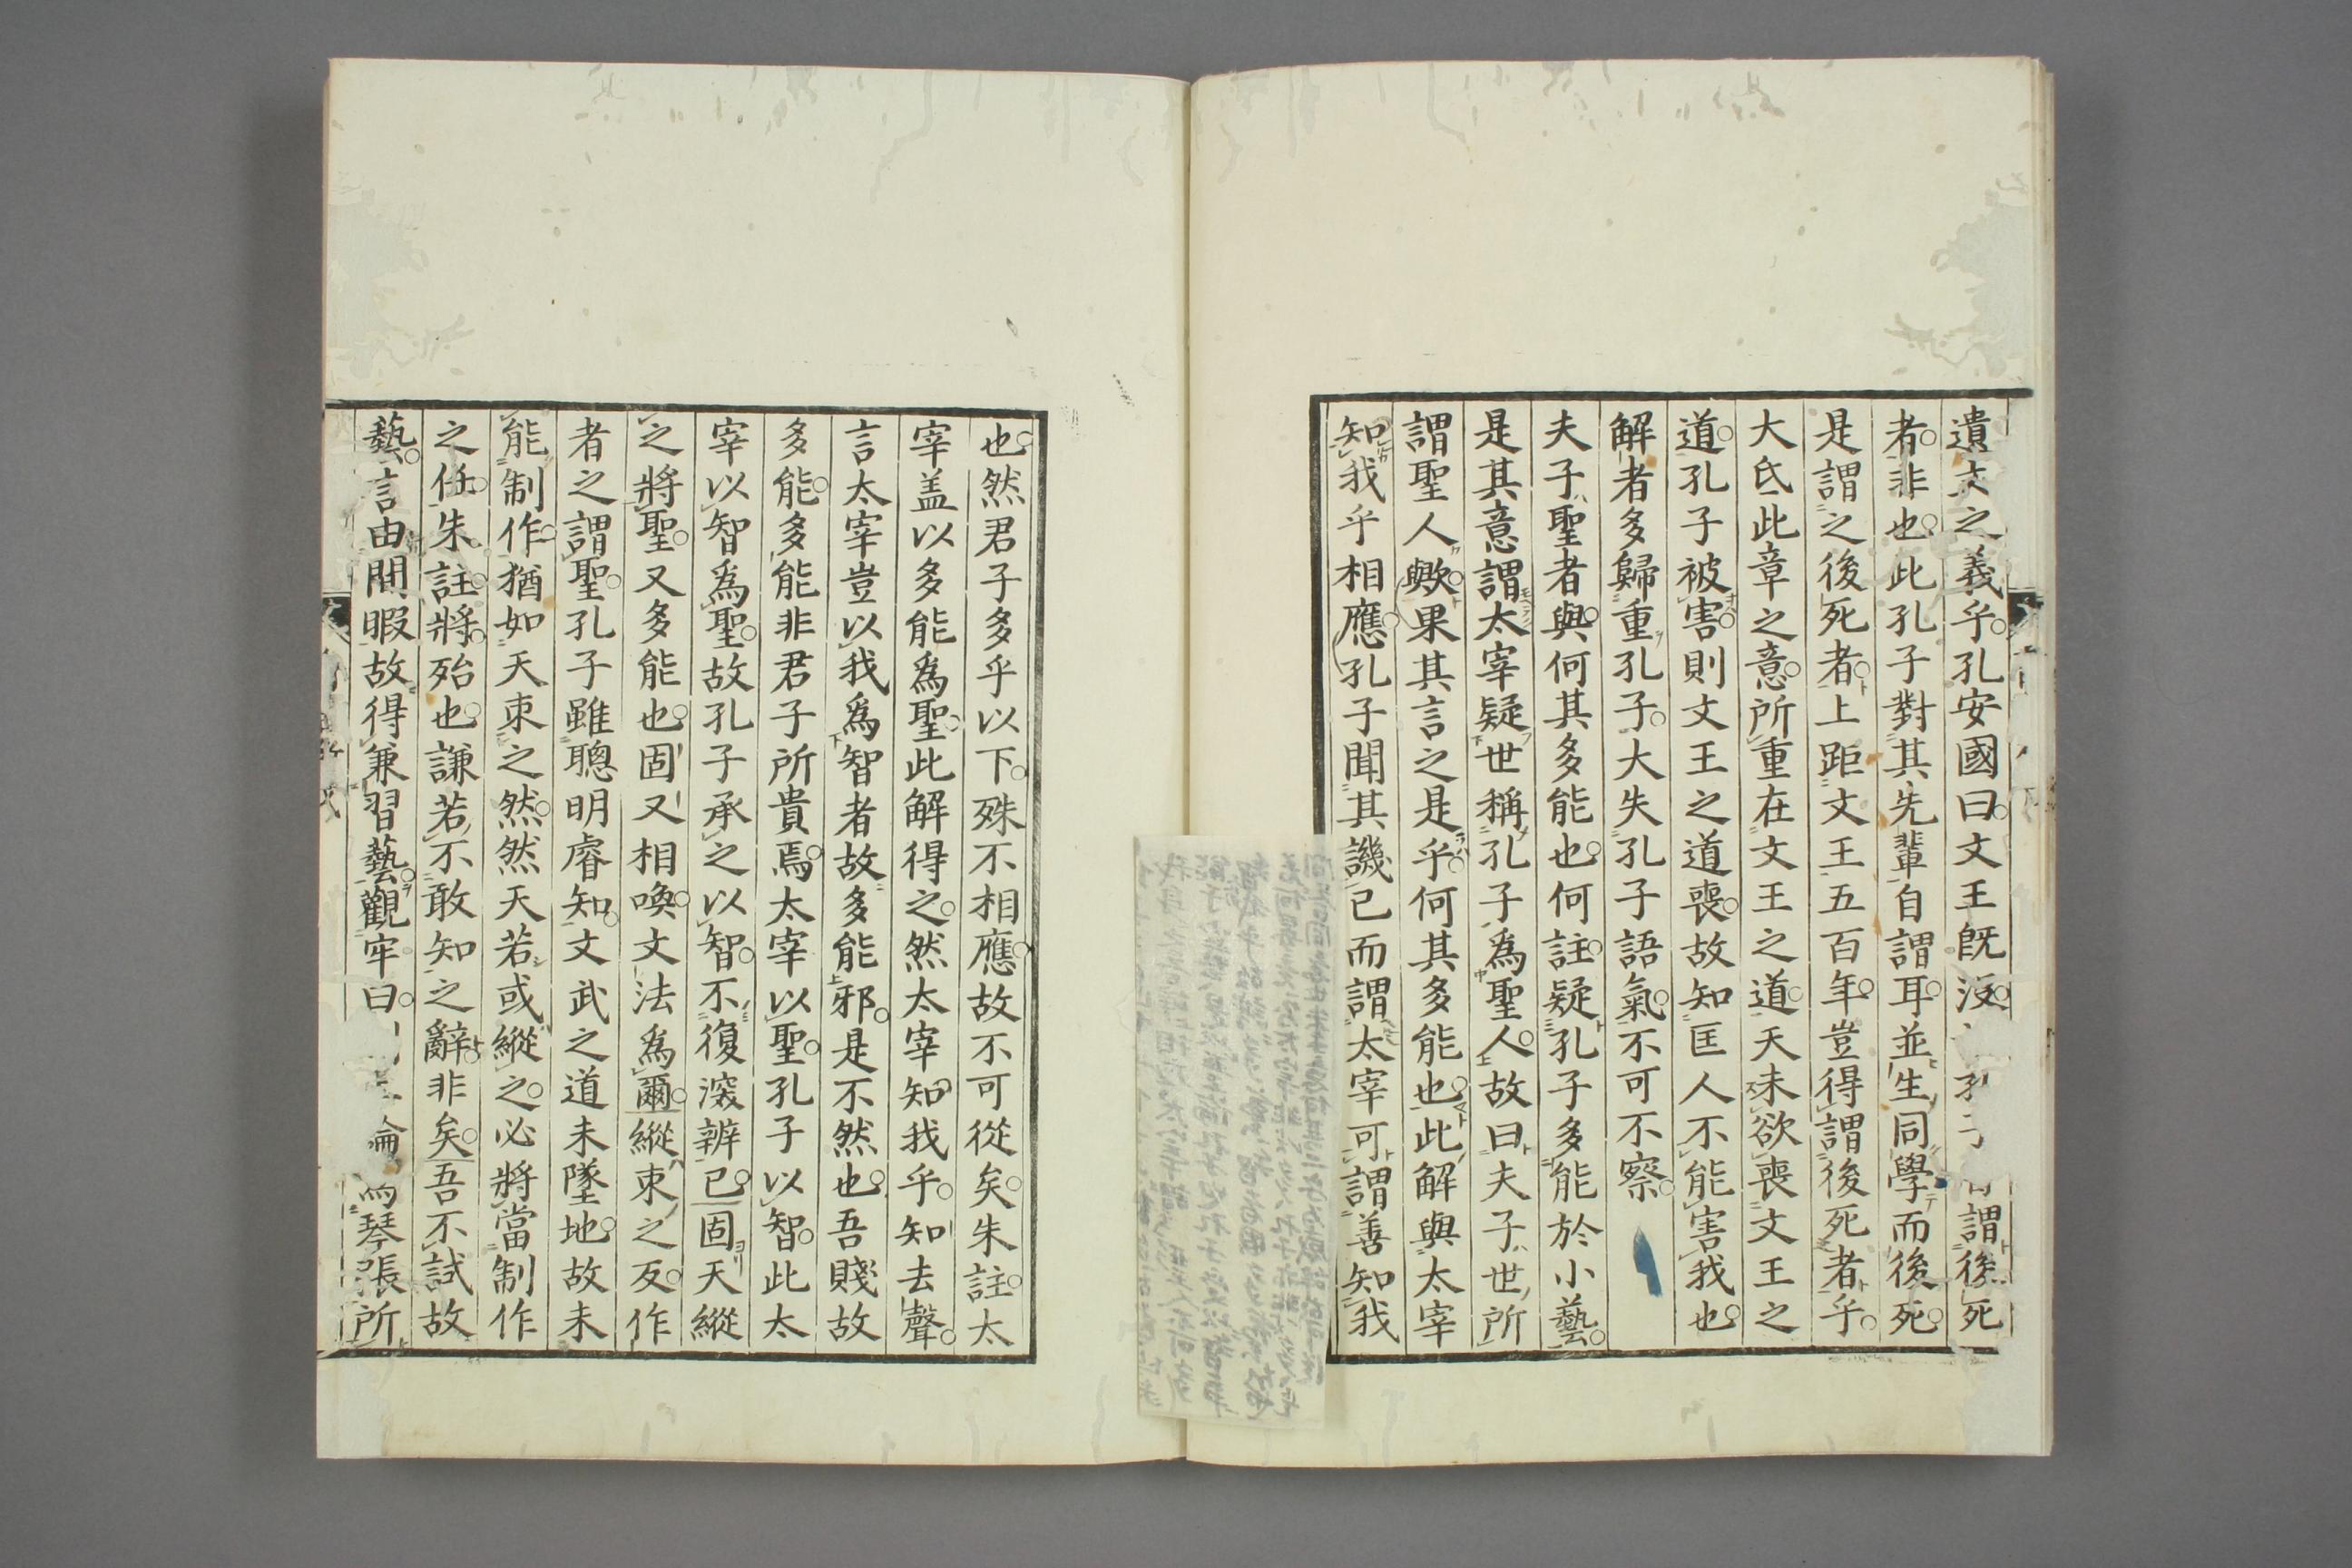 遺文之義乎孔安國曰文王旣沒孔子 謂後死
者非也此孔子對其先輩自謂耳並生同學而後死
是謂之後死者上距文王五百年豈得謂後死者乎
大氐此章之意所重在文王之道天未欲喪文王之
道孔子被害則文王之道喪故知匡人不能害我也
解者多歸重孔子大失孔子語氣不可不察
夫子聖者與何其多能也何註疑孔子多能於小藝
是其意謂太宰疑世稱孔子爲聖人故曰夫子世所
謂聖人歟果其言之是乎何其多能也此解與太宰
知我乎相應孔子聞其譏已而謂太宰可謂善知我
也然君子多乎以下殊不相應故不可從矣朱註太
宰盖以多能爲聖此解得之然太宰知我乎知去聲
言太宰豈以我爲智者故多能邪是不然也吾賤故
多能多能非君子所貴焉太宰以聖孔子以智此太
宰以智爲聖故孔子承之以智不復深辨已固天縱
之將聖又多能也固又相喚文法爲爾縱束之反作
者之謂聖孔子雖聰明睿知文武之道未墜地故未
能制作猶如天束之然然天若或縱之必將當制作
之任朱註將殆也謙若不敢知之辭非矣吾不試故
藝言由閒暇故得兼習藝觀牢曰 論 琴張所